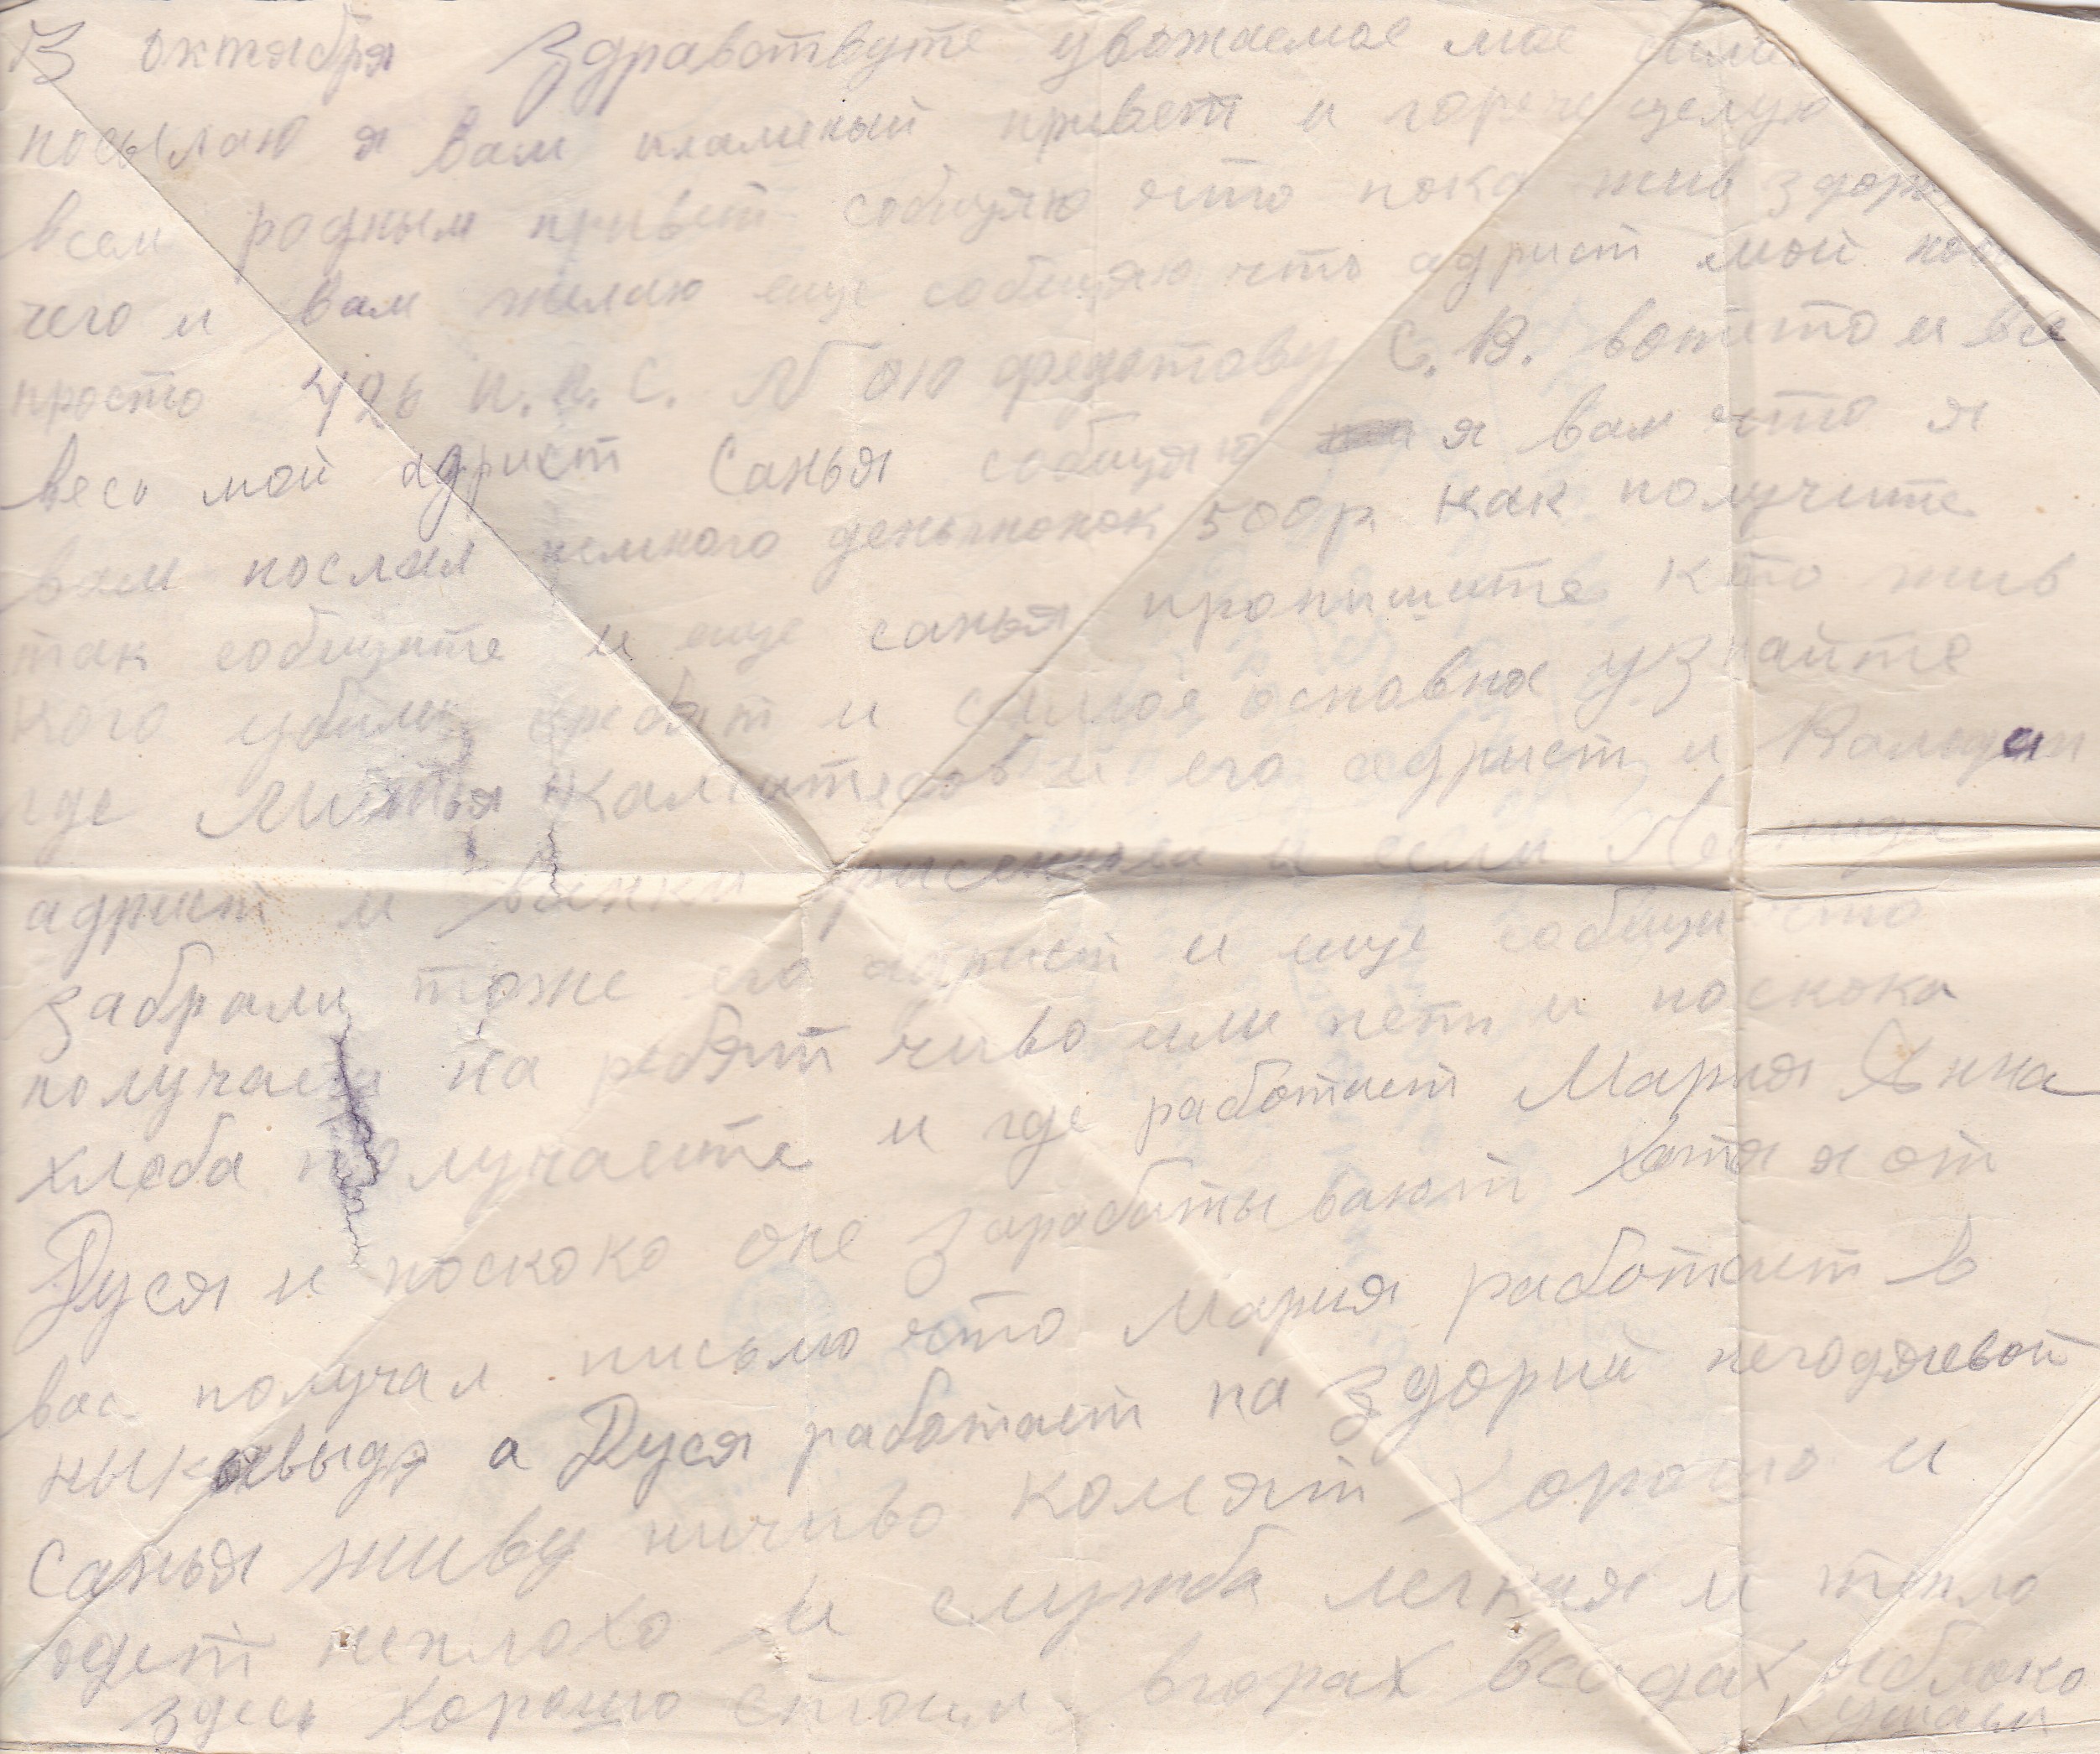 октября Здравотвуте уважаемое мое
посылаю я вам пламеный привет и горече целую
всем родным привет собщяю что пока жив
чего и вам желаю еще собщяю что адрист мой
просто 426 п.п.с. N 010 Федотову С.В. вотито и все
весь мой адрист Санья собщяю я вам что я
вам послал немного деньжонок 500р как получите
так собщите и еще санья пропишите кто жив
кого убили и самое основна узнайте
где Митья и его адрист и
адрист и ванки и если
забрали тоже его адрист и еще собщи что
получаеш на ребят чиво или нет и поскока
хлеба получаете и где работает Мария Анна
Дуся и поскоко оне зарабатывают хотя я от
вас получал письмо что Мария работает в
а Дуся работает на
санья живу ничиво комят хорошо и
одет неплохо и служба легкая и тепло
здесь хорошо стоим вгорах всадах яблоко
кушаем